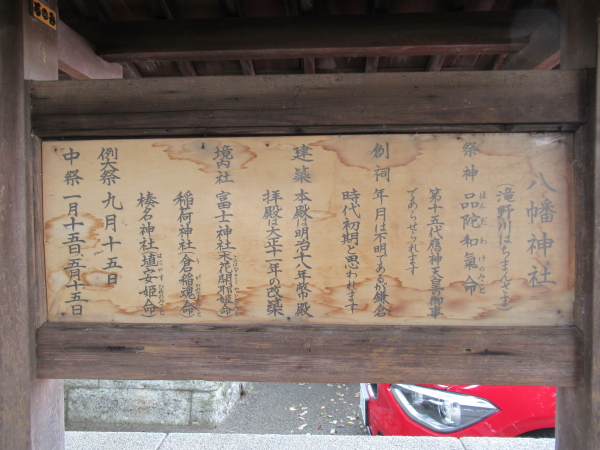 八幡神社
（滝野川はちまんさま）
祭神 品陀和氣命
ほんだわけのみこと
第十五代應神天皇の御事
であらせられます
創祠 年月は不明であるが鎌倉
時代初期と思われます
建築 本殿は明治十八年幣殿
拝殿は大正十一年の改築
境内社 富士神社（木花開耶姫命）
稲荷神社（倉稲魂命）
榛名神社（埴安姫命）
例大祭 九月十五日
中祭 一月十五日、五月十五日